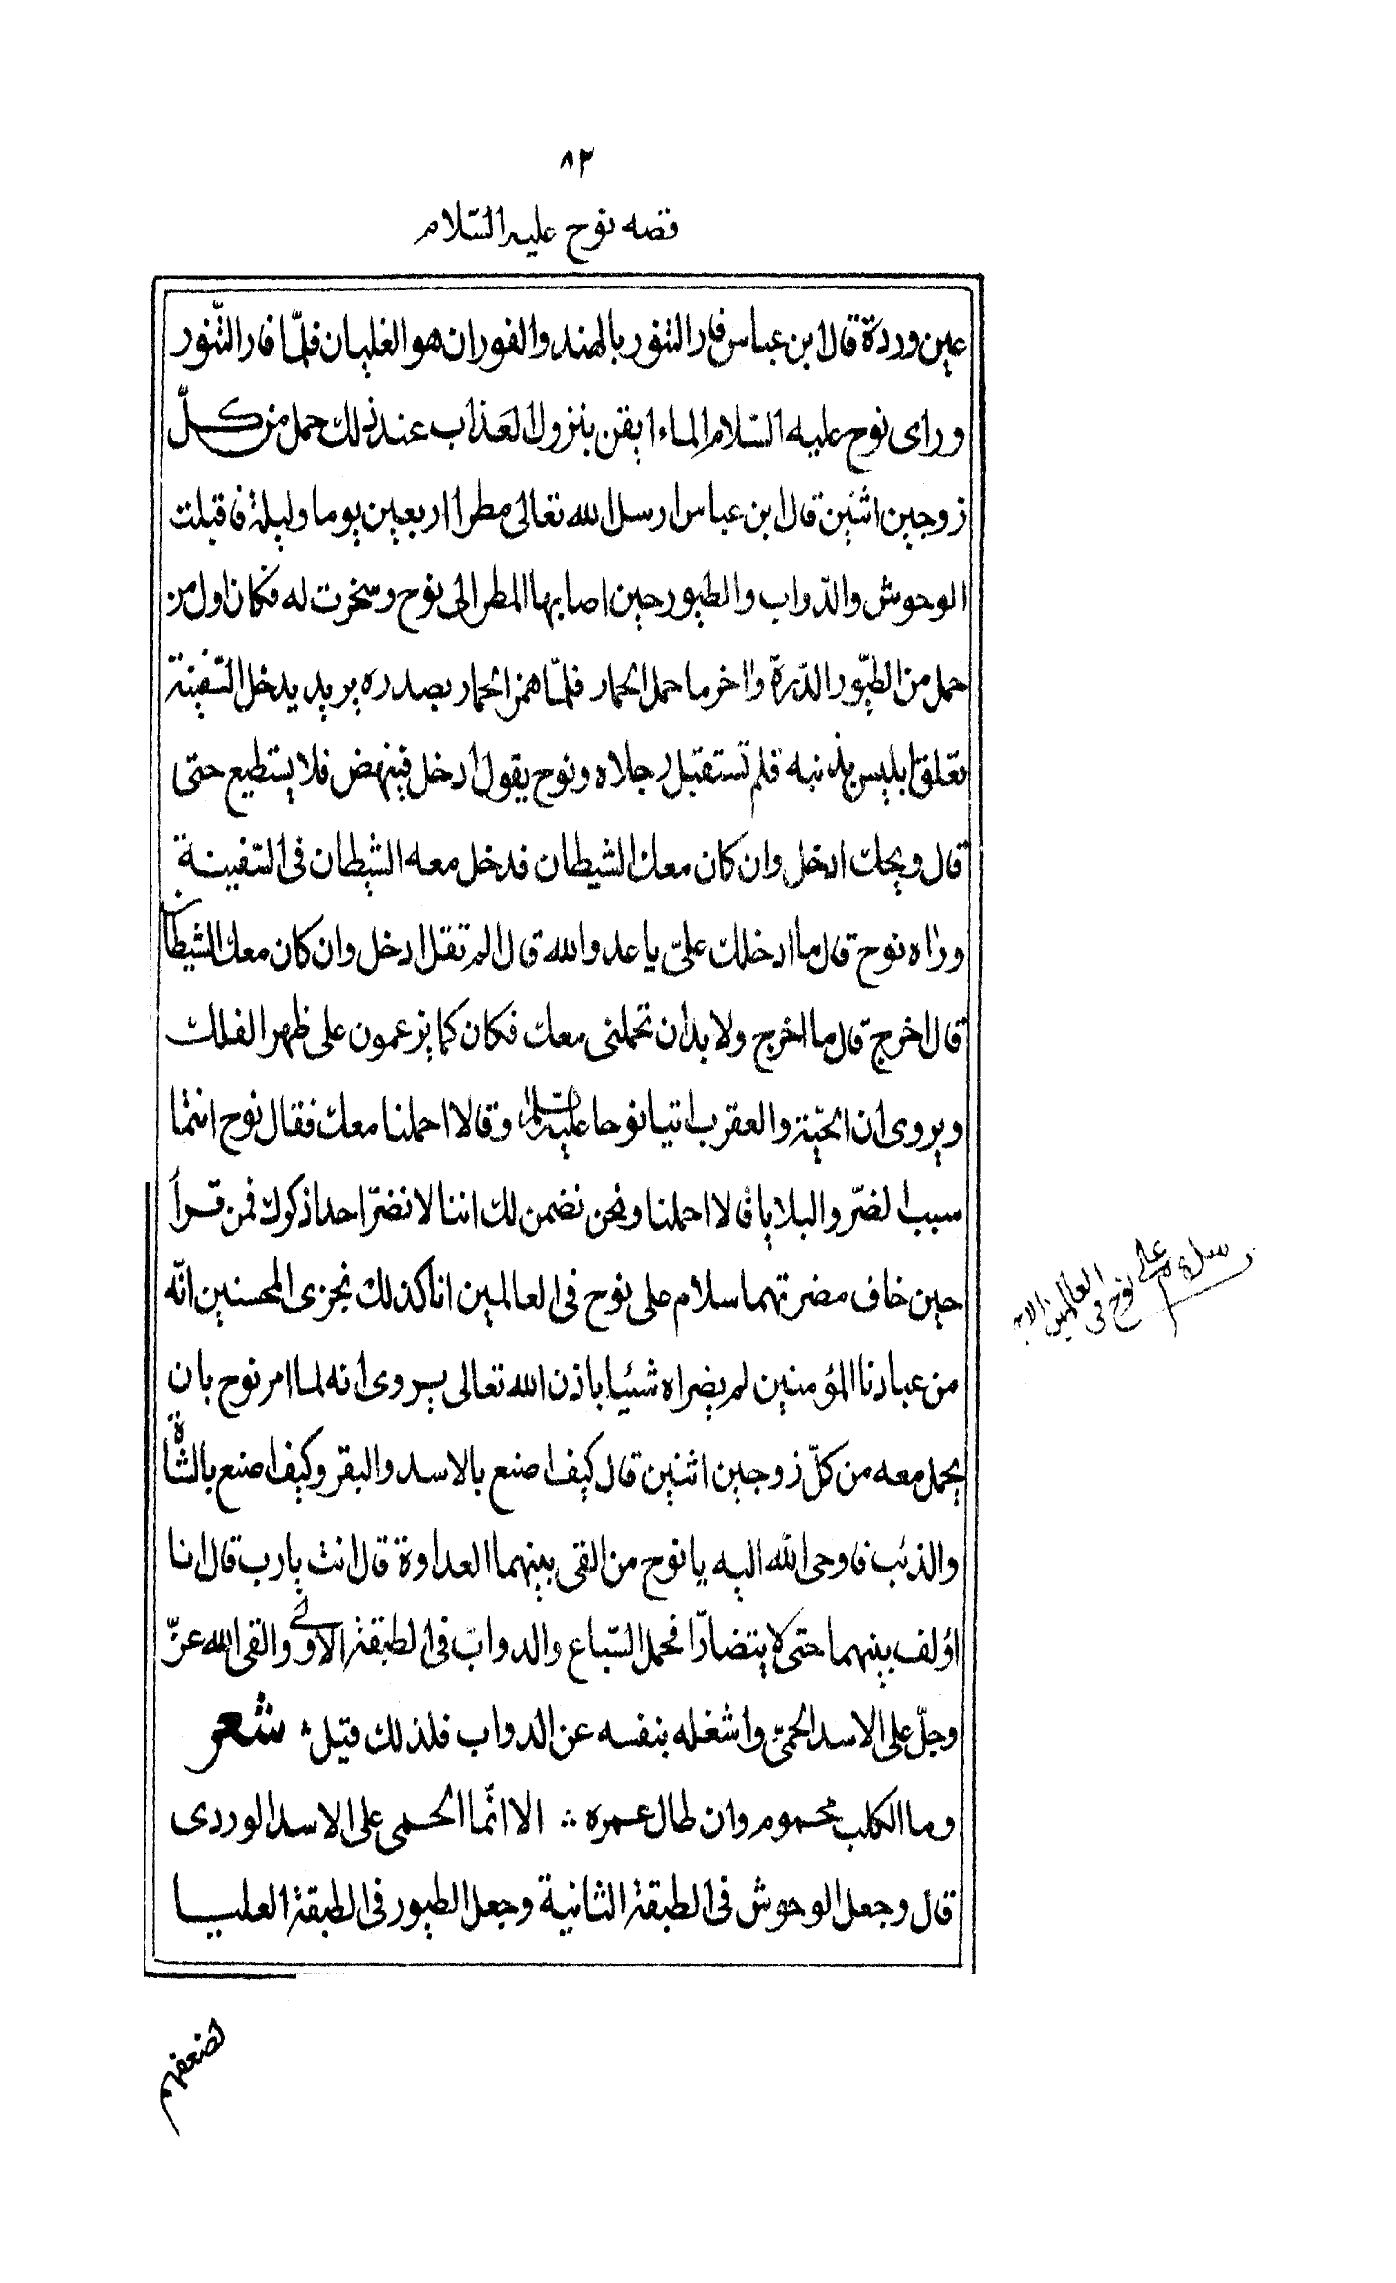 ٨٢
قصه نوح عليه السّلام
عين وردة قال ابن عباس فار التنور بالهند والفوران هو الغليان فلمّا فار التّنور
وراى نوح عليه السّلام الماء ايقن بنزول العذاب عند ذلك حمل من كلّ
زوجين اثنين قال ابن عباس ارسل الله تعالى مطرا اربعين يوما وليلة فاقبلت
الوحوش والدّواب والطيور حين اصابها المطر الى نوح وسخرت له فكان اول من
حمل من الطيّور الدّرة واخر ما حمل الحمار فلمّا همز الحمار بصدره يريد يدخل السّفينة
تعلق ابليس بذنبه فلم تستقبل رجلاه ونوح يقول ادخل فينهض فلا يستطيع حتى
قال ويحك ادخل وان كان معك الشيطان فدخل معه الشيطان فى السّفينة
وراه نوح قال ما ادخلك علىّ يا عدو الله قال الم تقل ادخل وان كان معك الشيطان
قال اخرج قال ما اخرج ولا بد ان تحملنى معك فكان كما يزعمون على ظهر الفلك
ويروى ان الحيّة والعقرب اتيا نوحا عليه السّلام وقالا احملنا معك فقال نوح انتما
سبب الضرّ والبلايا قالا احملنا ونحن نضمن لك اننا لا نضرّ احدا ذكرك فمن قرأ
حين خاف مضرتهما سلام على نوح فى العالمين انا كذلك نجزى المحسنين انّه
من عبادنا المؤمنين لم يضراه شئيا باذن الله تعالى يروى انه لما امر نوح بان
يحمل معه من كلّ زوجين اثنين قال كيف اصنع بالاسد والبقر وكيف اصنع بالشاة
والذئب فاوحى الله اليه يا نوح من القى بينهما العداوة قال انت يارب قال انا
اؤلف بينهما حتى لا يتضارّا فحمل السّباع والدوابّ فى الطبقة الاولى والقى الله عزّ
وجلّ على الاسد الحمىّ واشغله بنفسه عن الدواب فلذلك قيل شعر
وما الكلب محموم وان طال عمره ∴ الا انّما الحمى على الاسد الوردى
قال وجعل الوحوش فى الطبقة الثانية وجعل الطيور فى الطبقة العليا
لضعفهم
سلام على
نوح فى
العالمين الاية